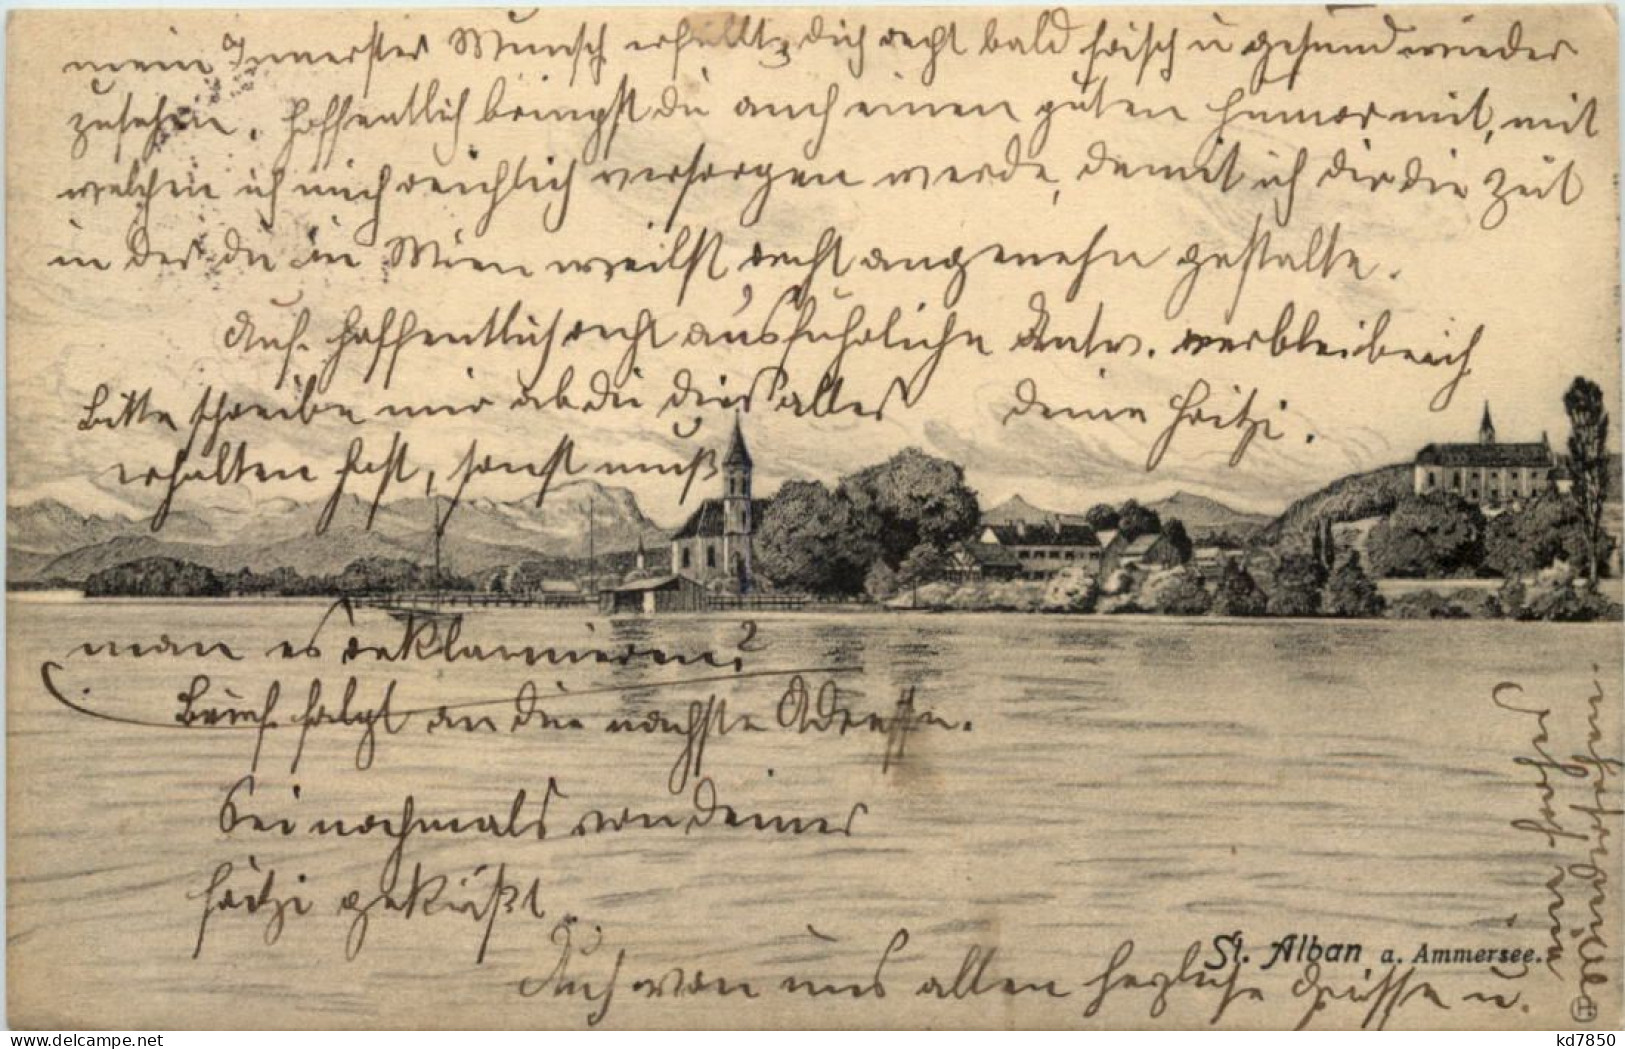 mein Innerster Wunsch erfüllt, dich recht bald frisch u gesund wieder
zusehen. Hoffentlich bringst du auch einen guten Humor mit, mit
welchen ich mich reichlich versorgen werde, damit ich dir die Zeit
in der du in Wien weilst, recht angenehm gestalte.
Auf hoffentlich recht ausführliche Antw. verbleibe ich
Bitte schreibe mir ob du dies alles
deine Fritzi.
erhalten hast, sonst muß
man es reklamieren?
Brief folgt an die nächste Adresse.
Sei nochmals von deiner
Fritzi geküßt
Auch von uns allen herzliche Grüsse u.
St. Alban a. Ammersee.
kd7850